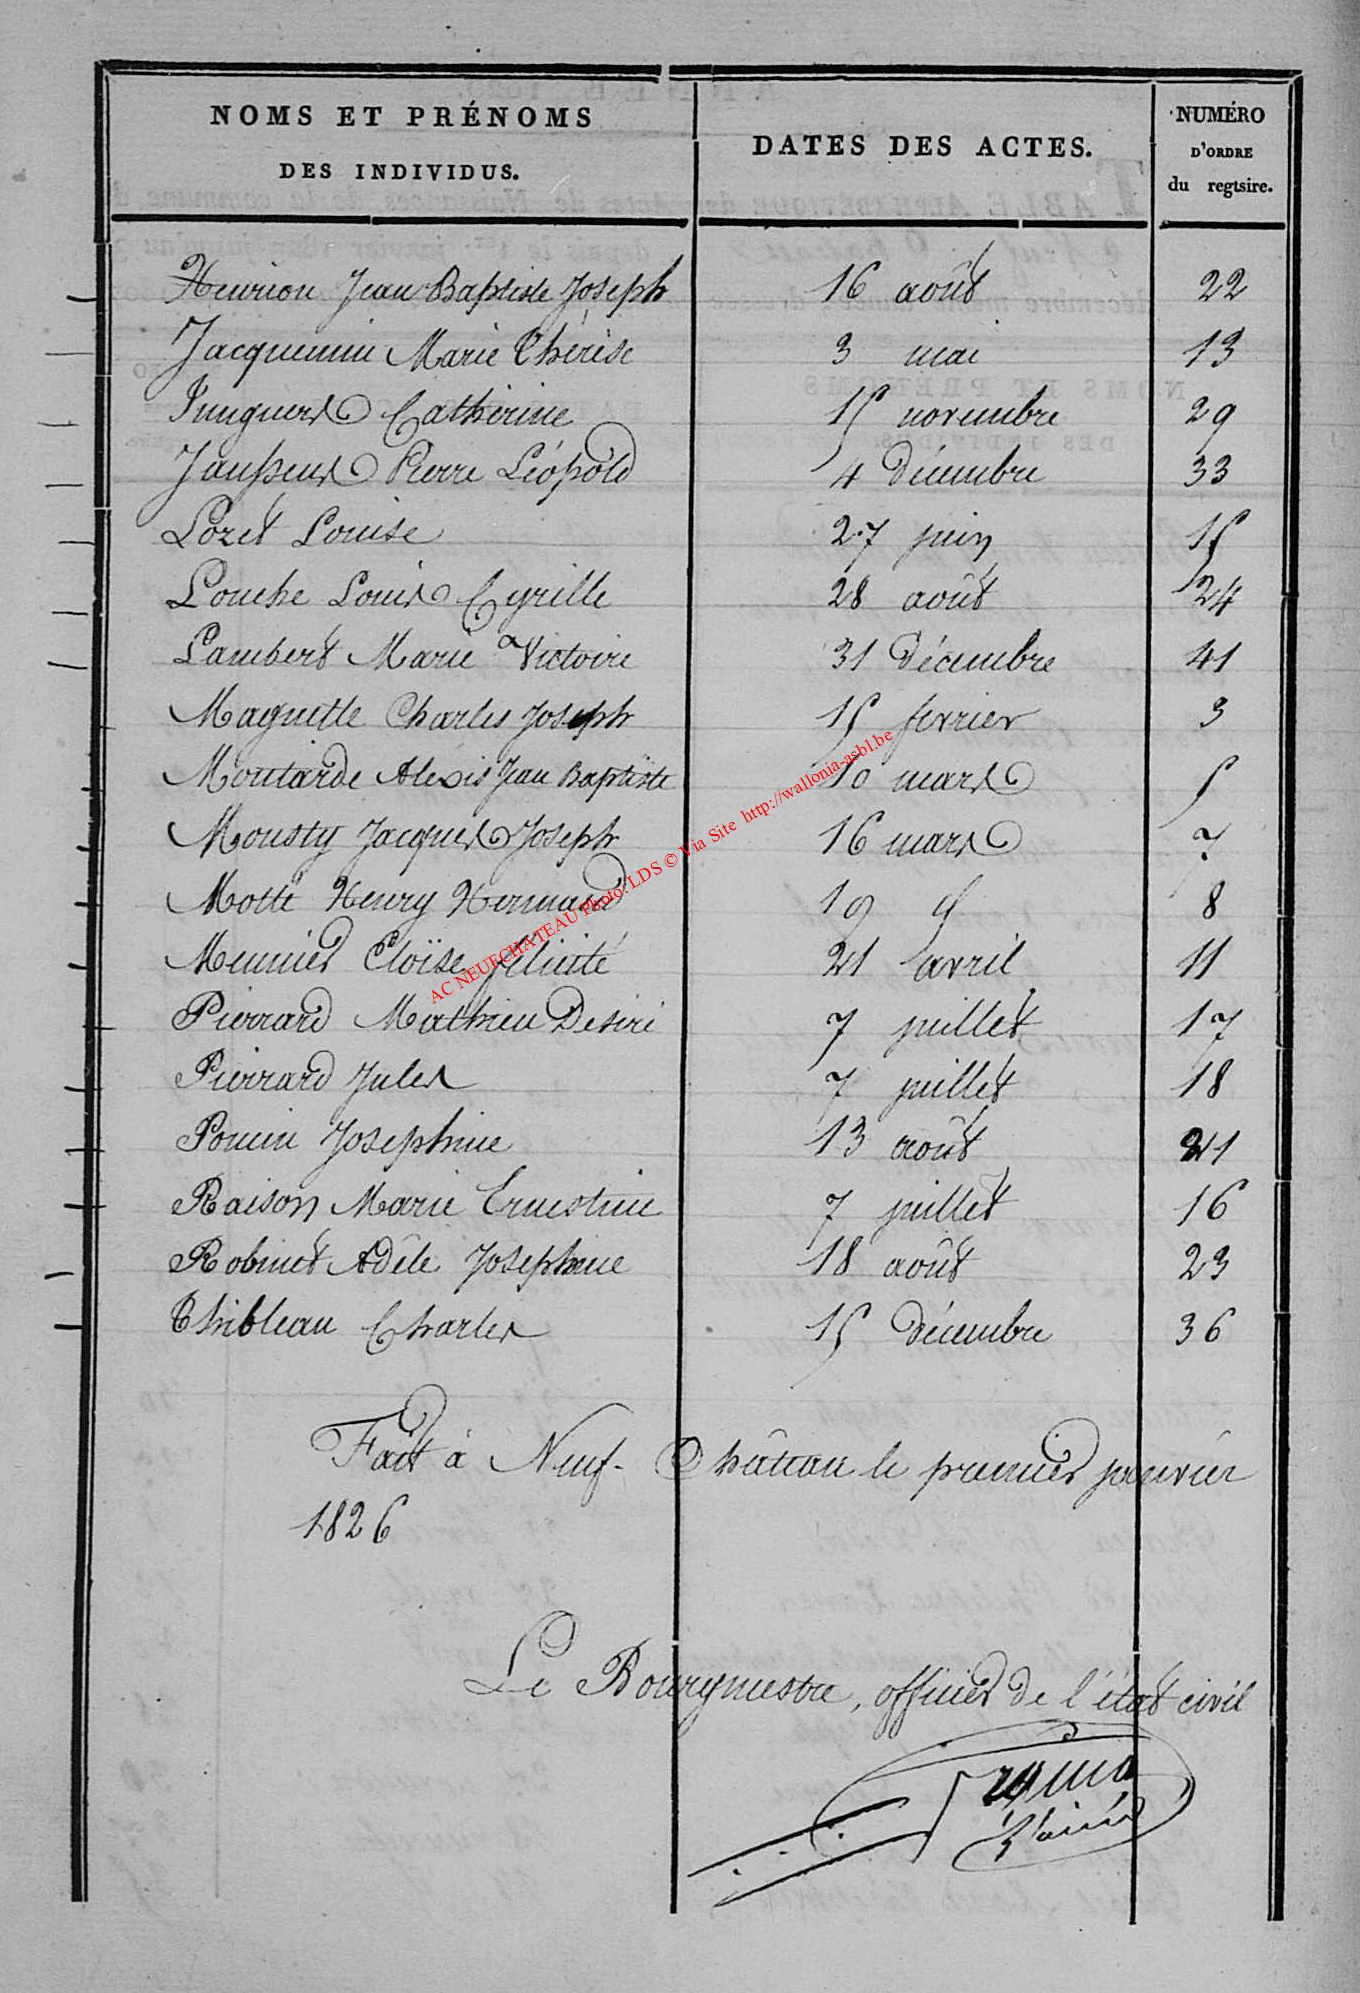 NOMS ET PRÉNOMS
DES INDIVIDUS.
DATES DES ACTES.
NUMÉRO
D'ORDRE
du regtsire.
Henrion Jean Baptiste Joseph 16 août 22
Jacquemin Marie Thérèse 3 mai 13
Junguers Catherine 15 novembre 29
Janssens Pierre Léopold 4 décembre 33
Lozet Louise 27 juin 15
Louche Louis Cyrille 28 août 24
Lambert Marie Victoire 31 décembre 41
Maquette Charles Joseph 15 février 3
Moutarde Alexis Jean Baptiste 10 mars 5
Mousty Jacques Joseph 16 mars 7
Motte Henry Hermand 19 8
Meunier Eloïse félicité 21 avril 11
Pierrard Mathieu Desiré 7 juillet 17
Pierrard Jules 7 juillet 18
Poncin Josephine 13 août 21
Raison Marie Ernestine 7 juillet 16
Robinet Adèle Josephine 18 août 23
Thibleau Charles 15 décembre 36
Fait à Neuf-Château le premier janvier
1826
Le Bourgmestre, officier de l'état civil
l'ainé
AC NEUFCHATEAU Photo: LDS © Via Site http://wallonia-asbl.be